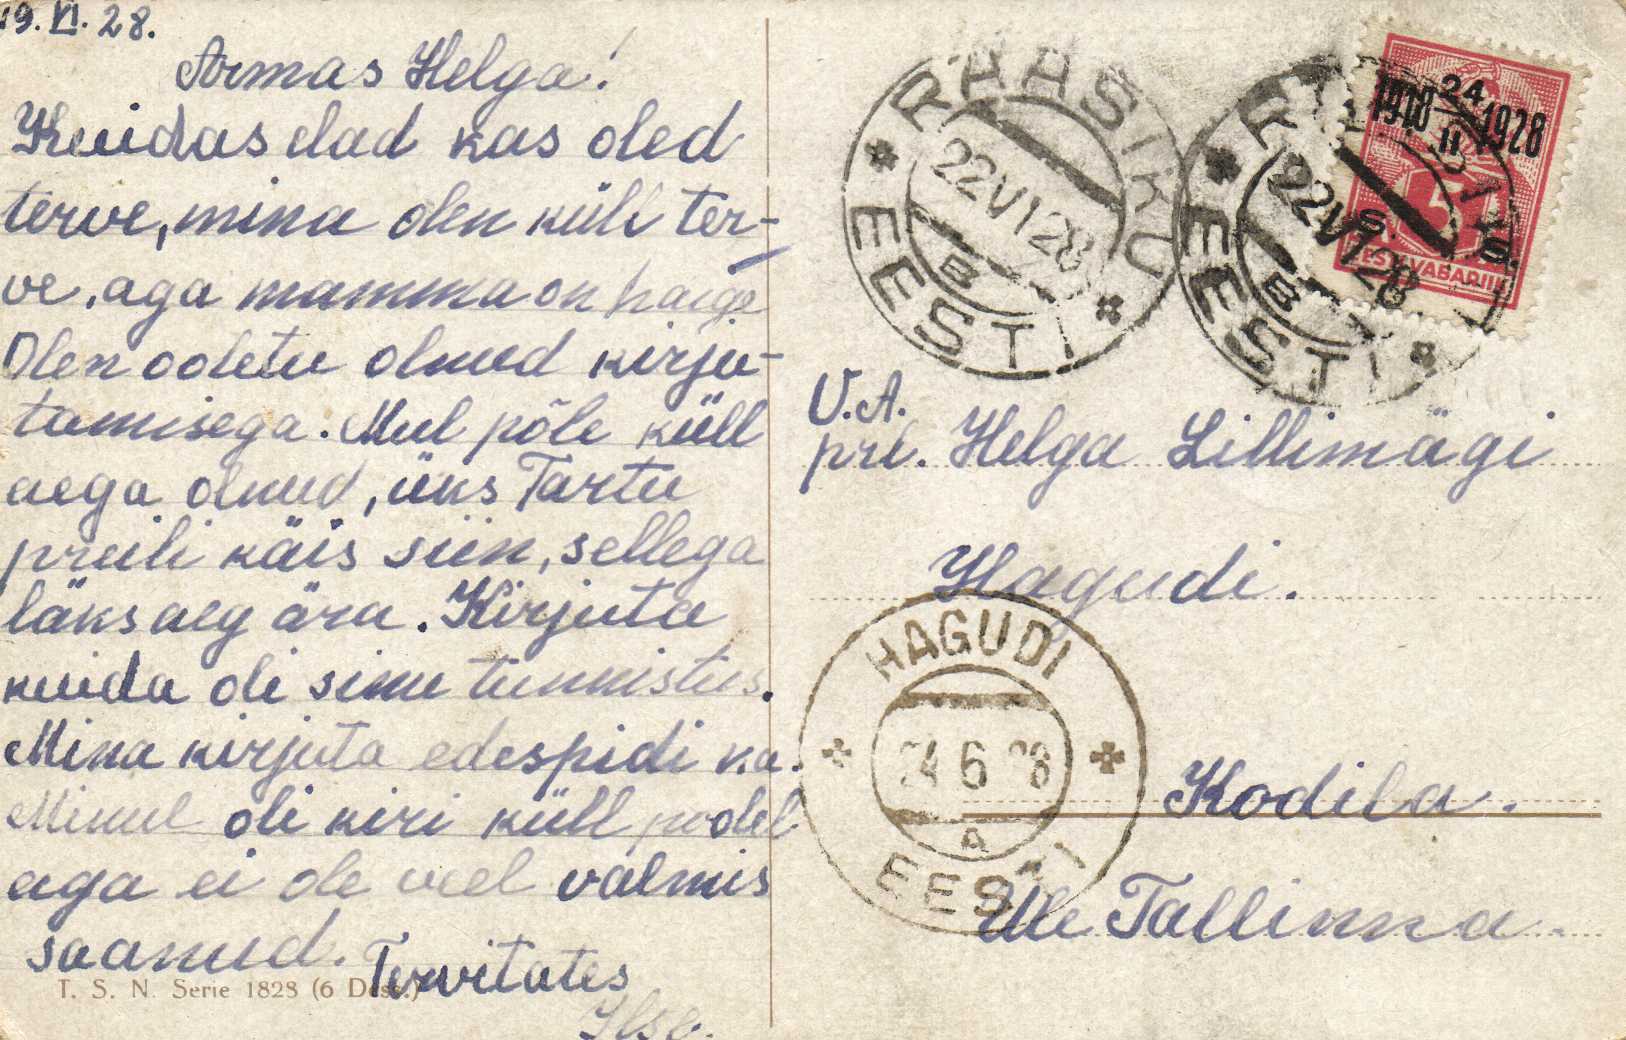 19. VI. 28.
Armas Helga!
Kuidas elad kas oled
terve, mina olen küll ter-
ve, aga mamma on haige
Olen oodetu olnud kirju-
tamisega. Mul põle küll
aega olnud, üks Tartu
preili käis siin, sellega
läks aeg ära. Kirjuta
kuida oli sinu tunnistus.
Mina kirjuta edespidi ka.
Minul oli kiri küll poolel
aga ei ole veel valmis
saanud. Tervitates
Ilse.
T. S. N. Serie 1828 (6 Dess.)
RAASIKU
22 VI 28
B
EESTI
RAASIKU
22 VI 28
B
EESTI
24
1918 II 1928
5
S. S.
EESTI VABARIIK
V.A.
prl. Helga Lillimägi
Hagudi.
HAGUDI
24 6 28
A
EESTI
Kodila.
Ule Tallinna.